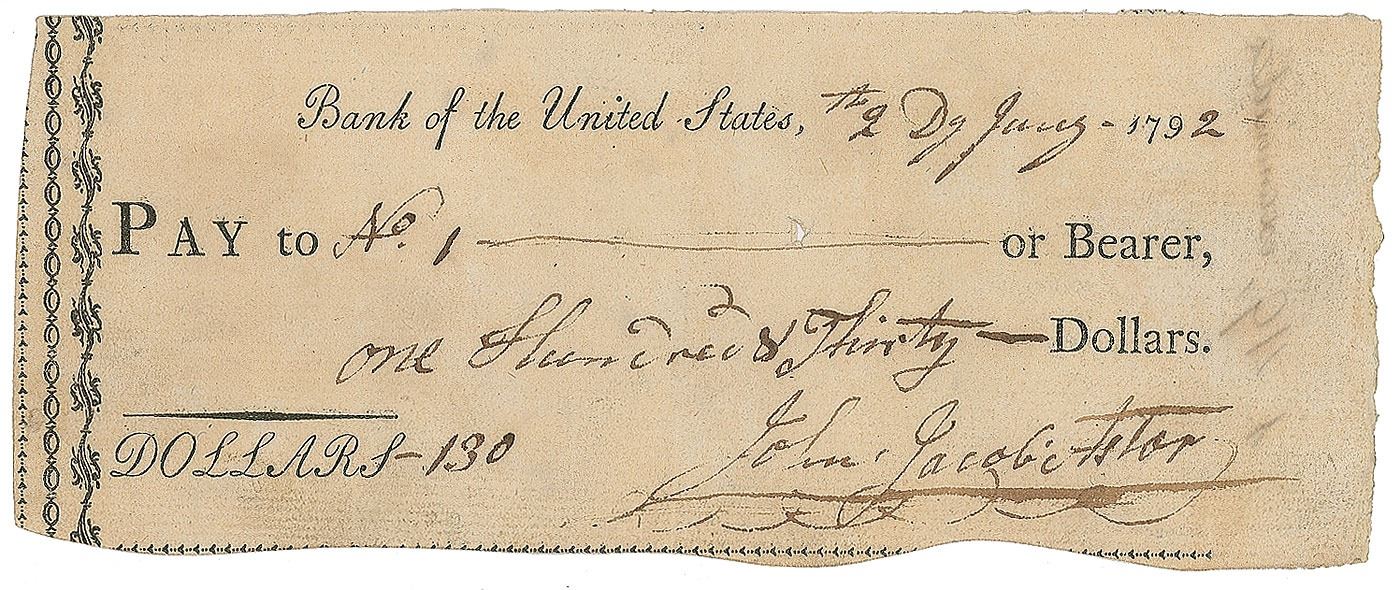 Bank of the United States, the 2 Dy Juny - 1792
PAY to No. 1 or Bearer,
one Hundred & Thirty Dollars.
DOLLARS - 130
John Jacob Astor